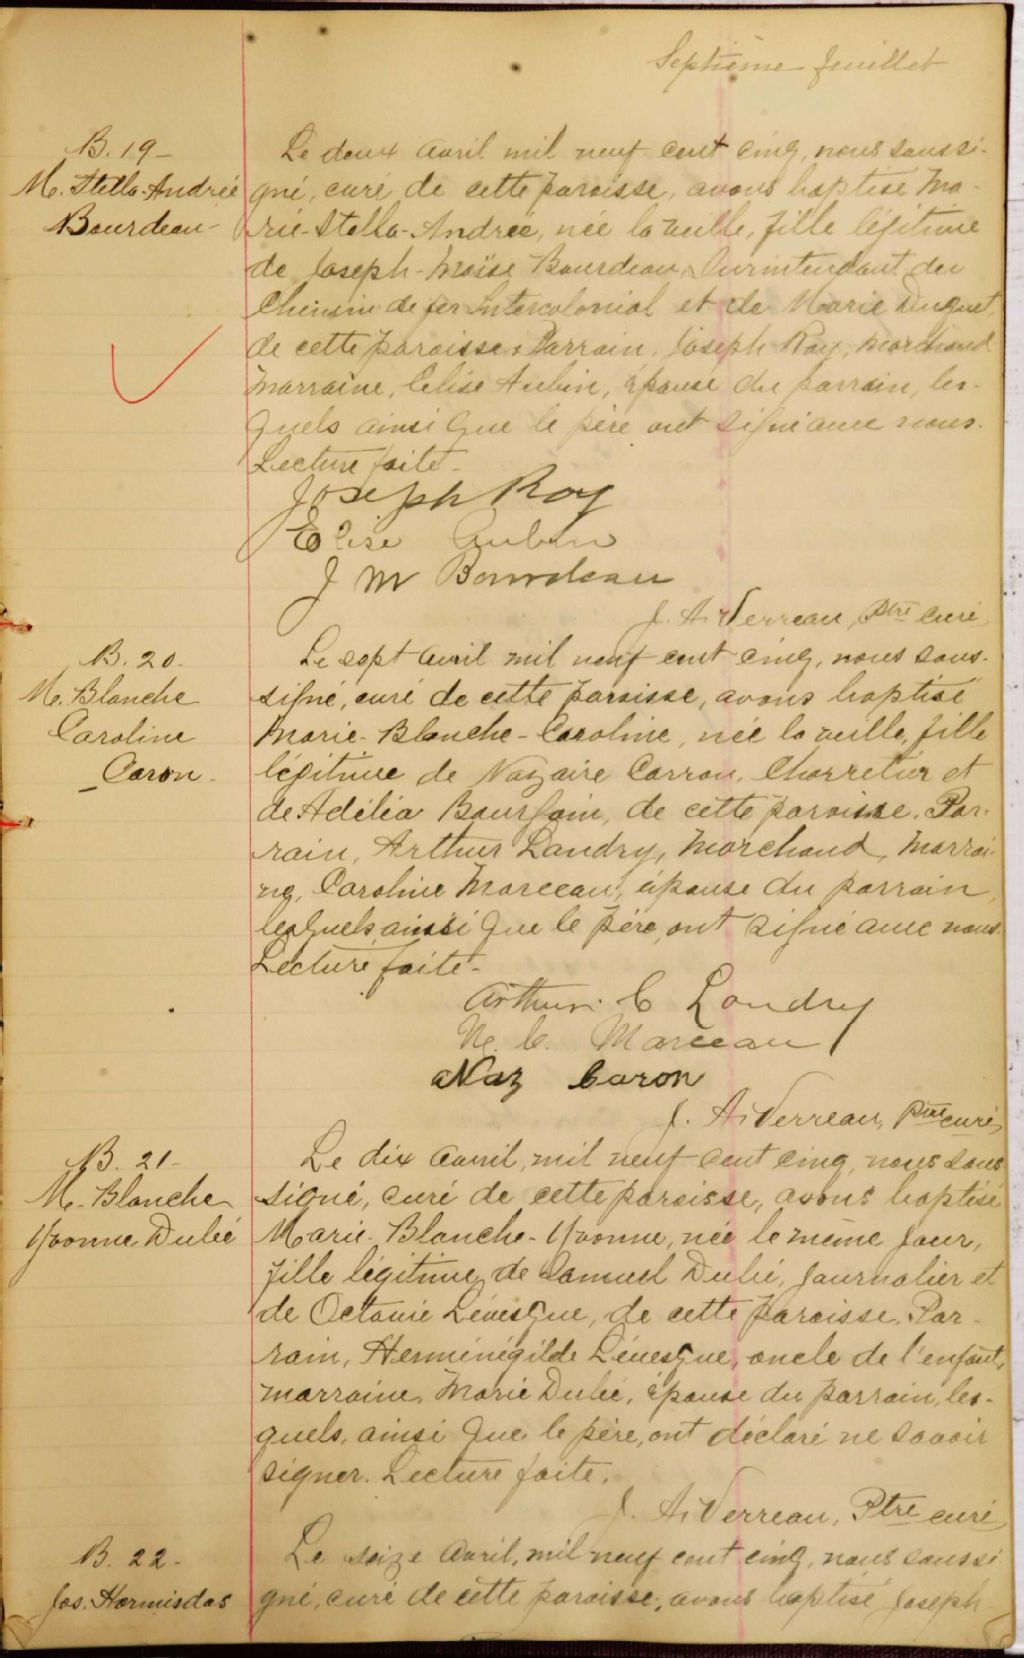 Septième feuillet
B. 19-
M. Stella-Andrée
Bourdeau-
Le deux avril mil neuf cent cinq, nous soussi-
gné, curé de cette paroisse, avons baptisé Ma-
rie-Stella-Andrée, née la veille, fille légitime
de Joseph-Moïse Bourdeau, Surintendant du
Chemin de fer Intercolonial et de Marie Duguet,
de cette paroisse. Parrain, Joseph Roy, marchand
marraine, Elise Aubin, épouse du parrain, les-
quels ainsi que le père ont signé avec nous.
Lecture faite-
Joseph Roy
Elise Aubin
J M Bourdeau
J. A. Verreau, Ptre curé
B. 20.
M. Blanche
Caroline
Caron.
Le sept avril mil neuf cent cinq, nous sous-
signé, curé de cette paroisse, avons baptisé
Marie-Blanche-Caroline, née la veille, fille
légitime de Nazaire Carron, Charretier et
de Adélia Bourgoin, de cette paroisse. Par-
rain, Arthur Landry, Marchand, Marrai-
ne, Caroline Marceau, épouse du parrain,
lesquels ainsi que le père, ont signé avec nous.
Lecture faite-
Arthur. C Landry
M. C. Marceau
Naz Caron
J. A. Verreau, Ptre curé,
B. 21-
M. Blanche
Yvonne Dubé
Le dix avril, mil neuf cent cinq, nous sous
signé, curé de cette paroisse, avons baptisé
Marie-Blanche-Yvonne, née le même jour,
fille légitime, de Samuel Dubé, Journalier et
de Octavie Lévesque, de cette paroisse. Par-
rain, Herménégilde Lévesque, oncle de l'enfant,
marraine, Marie Dubé, épouse du parrain, les-
quels, ainsi que le père, ont déclaré ne savoir
signer. Lecture faite.
J. A. Verreau, Ptre curé
B. 22-
Jos. Hormisdas
Le seize avril, mil neuf cent cinq, nous soussi
gné, curé de cette paroisse, avons baptisé Joseph-